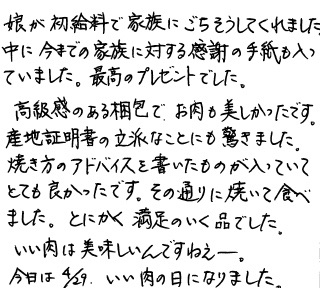 娘が初給料で家族にごちそうしてくれました
中に今までの家族に対する感謝の手紙も入っ
ていました。最高のプレゼントでした。
高級感のある梱包で、お肉も美しかったです。
産地証明書の立派なことにも驚きました。
焼き方のアドバイスを書いたものが入っていて
とても良かったです。その通りに焼いて食べ
ました。とにかく満足のいく品でした。
いい肉は美味しいんですねえー。
今日は4/29. いい肉の日になりました。